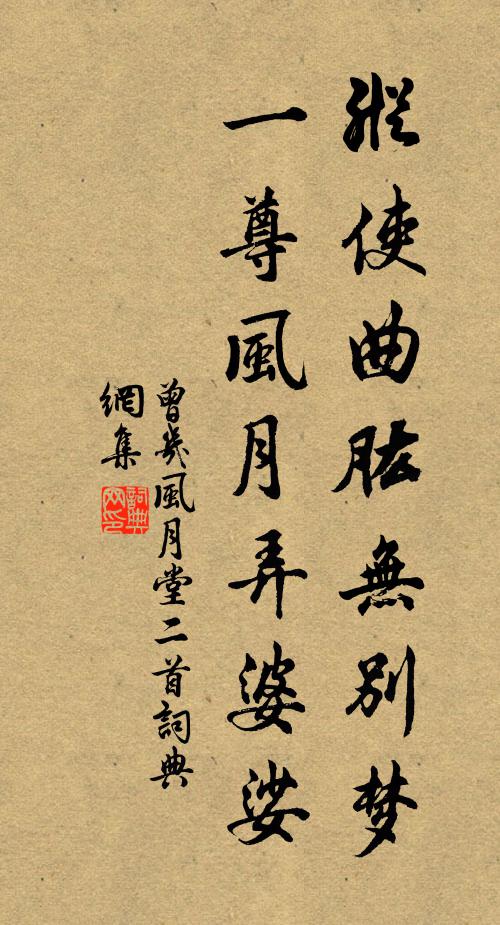 縱使曲肱無別梦
一尊風月弄婆娑
曾幾風月堂二首詞典
網集
詞典
网印